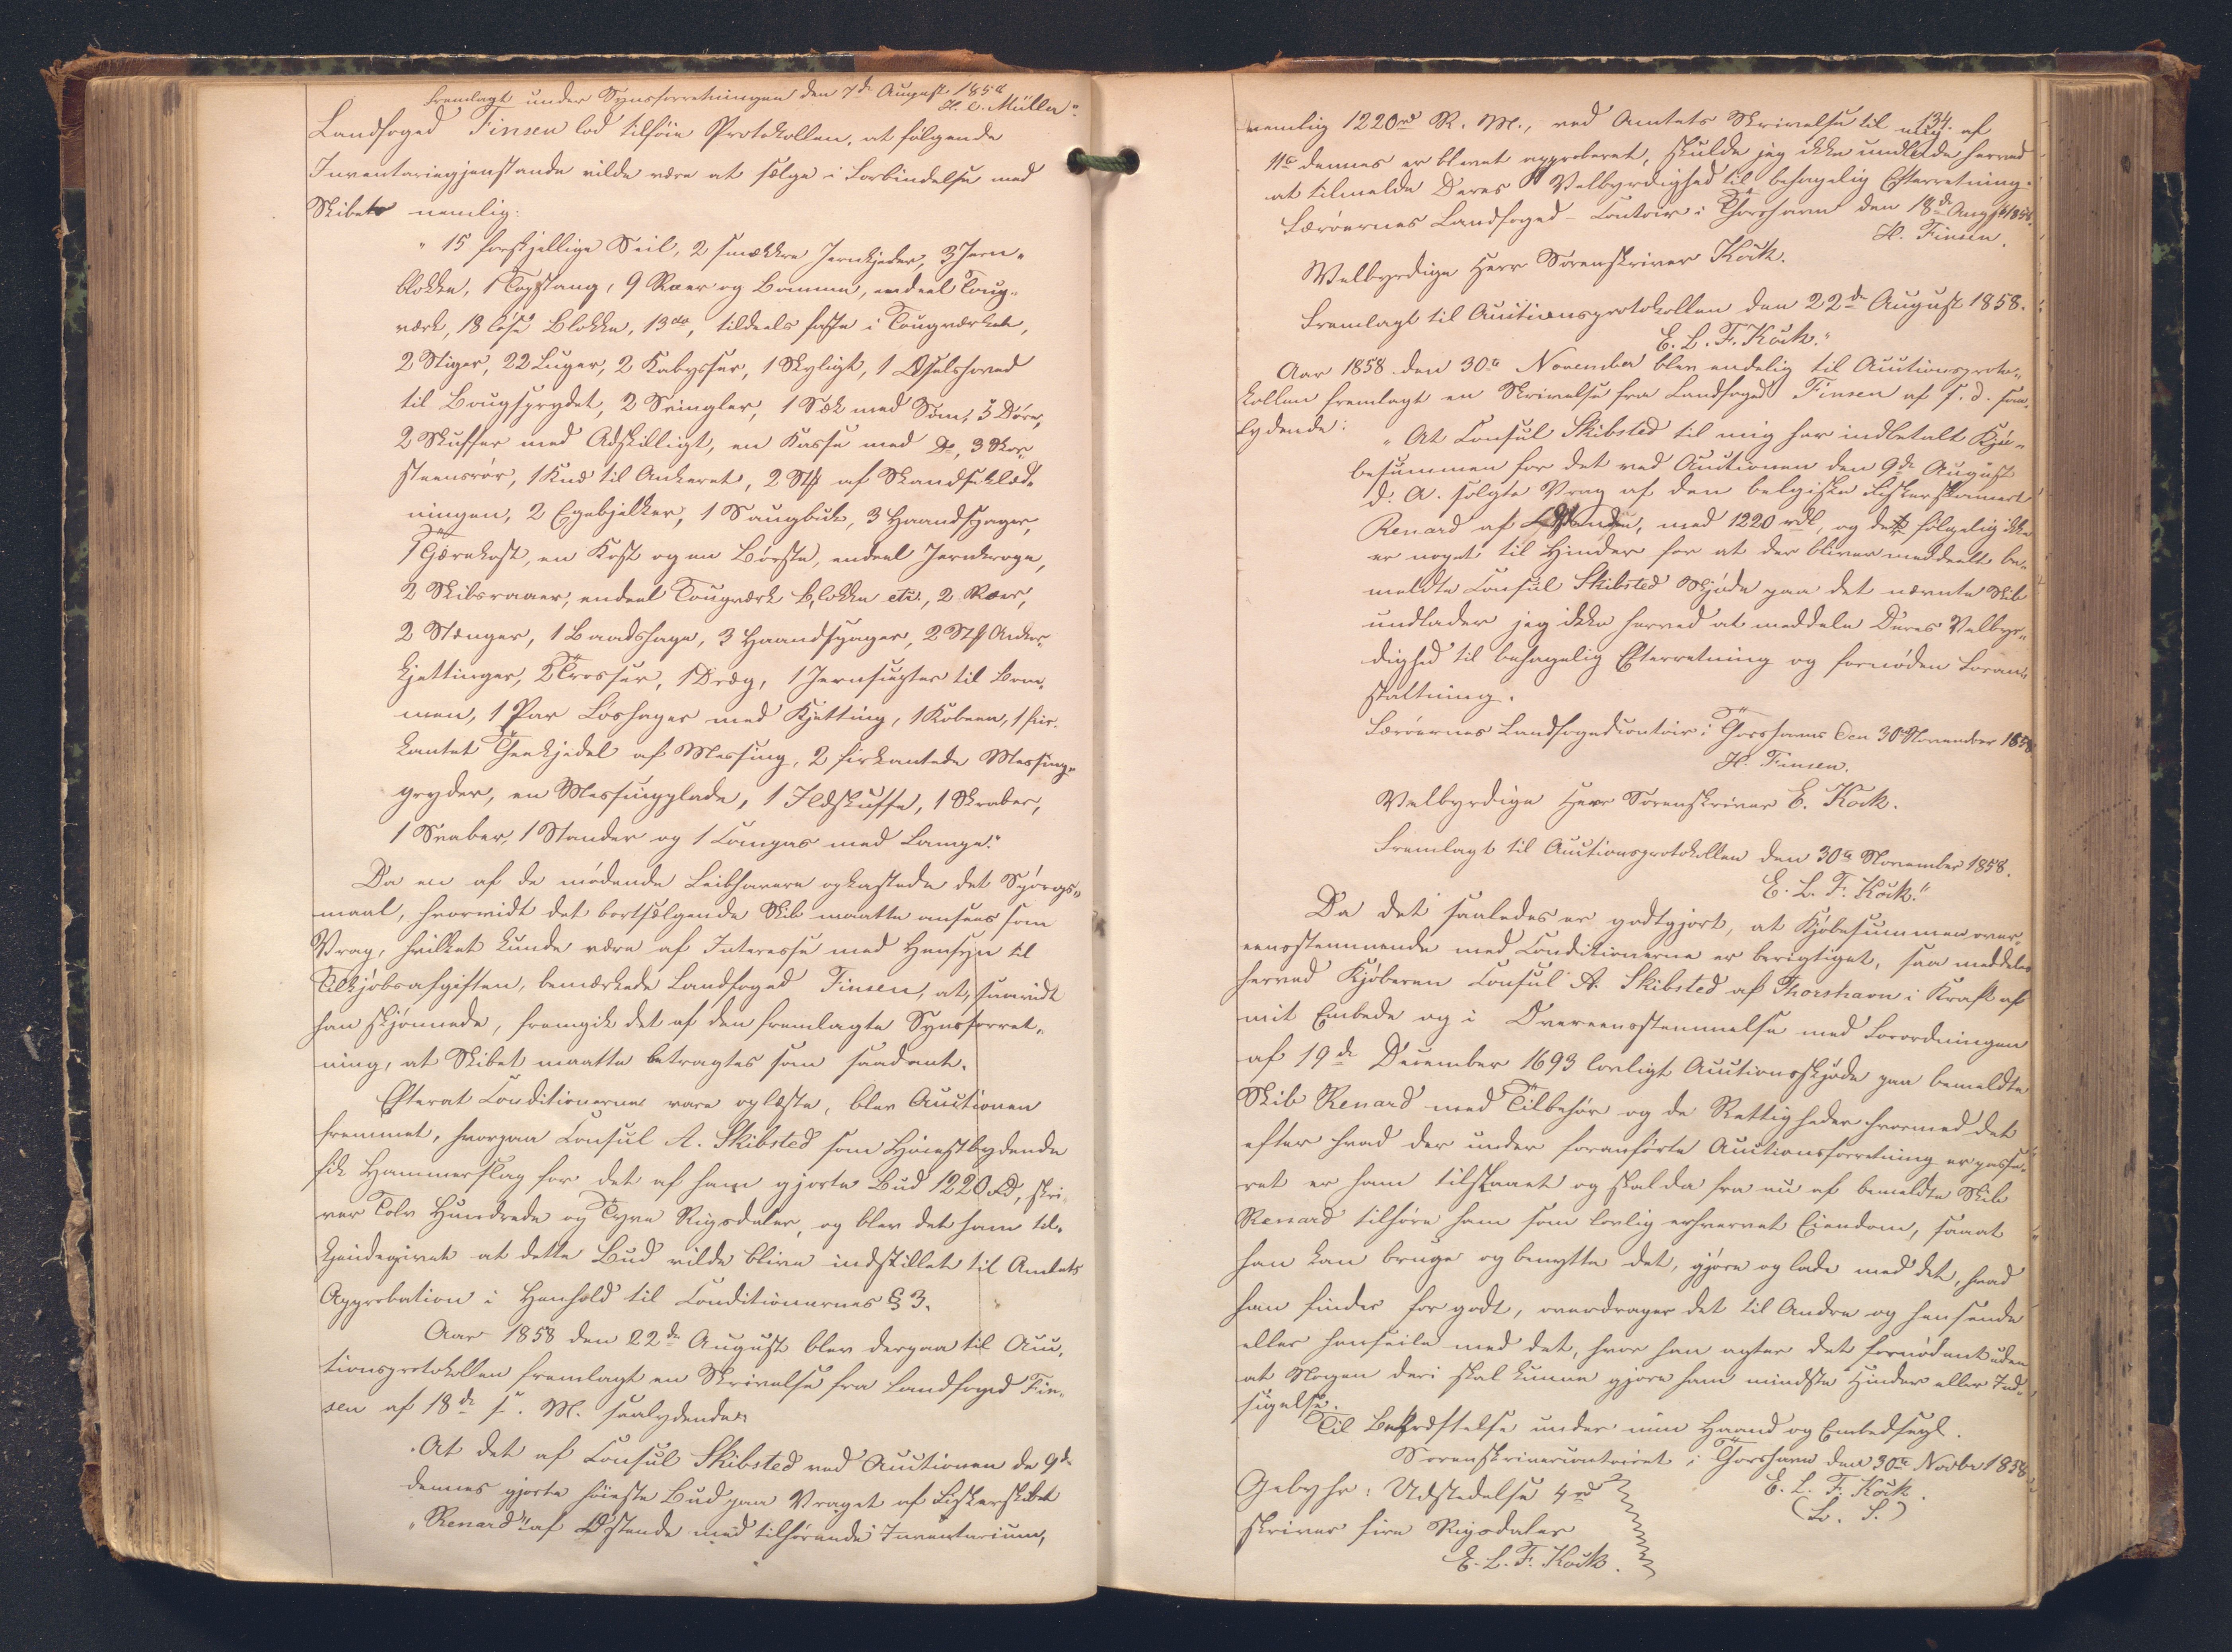 Fremlagt under Synsforretningen den 7de August 1858
H. C. Müller."
Landfoged Finsen lod tilføie Protokollen, at følgende
Inventariegjenstande vilde være at sælge i Forbindelse med
Skibet nemlig:
" 15 forskjellige Seil, 2 smækkre Jernkjeder, 3 Jern-
blokke, 1 Topstang, 9 Ræer og Bomme, endeel Toug-
værk, 18 løse Blokke, 13 do, tildeels faste i Tougværket,
2 Stiger, 22 Luger, 2 Kabysser, 1 Skyligt, 1 Æselshoved
til Bougsprydet, 2 Svingler, 1 Sæk med Søm, 3 Døre,
2 Skuffer med Adskilligt, en Kasse med Do, 3 Skor-
steensrør, 1 Knæ til Ankeret, 2 Stk af Skandseklæd-
ningen, 2 Egebjelker, 1 Saugbuk, 3 Haandspager,
1 Tjærekost, en Kost og en Børste, endeel Jernkroge,
2 Skibsraaer, endeel Tougværk Blokke etc., 2 Ræer,
2 Stænger, 1 Baadshage, 3 Haandspager, 2 Stk Anker-
kjettinger, 2 Trosser, 1 Dræg, 1 Jernsupter til Bom-
men, 1 Par Løshager med Kjetting, 1 Kobeen, 1 fiir-
kantet Theekjedel af Messing, 2 firkantede Messing-
gryder, en Messingplade, 1 Ildskuffe, 1 Skraber,
1 Svaber, 1 Stander og 1 Compas med Lampe."
Da en af de mødende Leibhavere opkastede det Spørgs-
maal, hvorvidt det bortsælgende Skib maatte ansees som
Vrag, hvilket kunde være af Interesse med Hensyn til
Tilkjøbsafgiften, bemærkede Landfoged Finsen, at, saavidt
han skjønnede, fremgik det af den fremlagte Synsforret-
ning, at Skibet maatte betragtes som saadant.
Efterat Conditionerne vare oplæste, blev Auctionen
fremmet, hvorpaa Consul A. Skibsted som Høiestbydende
fik Hammerslag for det af ham gjorte Bud 1220 Rd, skri-
ver Tolv Hundrede og Tyve Rigsdaler, og blev det ham til-
kjendegivet at dette Bud vilde blive indstillet til Amtets
Approbation i Henhold til Conditionernes § 3.
Aar 1858 den 22de August blev derpaa til Auc-
tionsprotokollen fremlagt en Skrivelse fra Landfoged Fin-
sen af 18de s. M. saalydende:
"At det af Consul Skibsted ved Auctionen de 9de
dennes gjorte høieste Bud paa Vraget af Fiskerskibet
"Renard" af Ostende med tilhørende Inventarium,
134.
nemlig 1220 rd R. M., ved Amtets Skrivelse til mig af
11te dennes er blevet approberet, skulde jeg ikke undlade herved
at tilmelde Deres Velbyrdighed til behagelig Efterretning.
Færøernes Landfoged-Contoir i Thorshavn den 18de August 1858.
H. Finsen.
Velbyrdige Herr Sorenskriver Kock.
Fremlagt til Auctionsprotokollen den 22de August 1858.
E. L. F. Kock."
Aar 1858 den 30te November blev endelig til Auctionsproto-
kollen fremlagt en Skrivelse fra Landfoged Finsen af s. d. saa-
lydende:
"At Consul Skibsted til mig har indbetalt Kjø-
besummen for det ved Auctionen den 9de August
d. A. solgte Vrag af den belgiske
Renard af Ostende, med 1220 rdl, og det følgelig ikke
er noget til Hinder for at der bliver meddeelt be-
meldte Consul Skibsted Skjøde paa det nævnte Skib
undlader jeg ikke herved at meddele Deres Velbyr-
dighed til behagelig Efterretning og fornøden Foran-
staltning.
Færøernes Landfogedcontoir i Thorshavn den 30 November 1858.
H. Finsen.
Velbyrdige Herr Sorenskriver E. Kock.
Fremlagt til Auctionsprotokollen den 30te November 1858.
E. L. F. Kock."
Da det saaledes er godtgjort, at Kjøbesummen over-
eensstemmende med Conditionerne er berigtiget, saa meddeles
herved Kjøberen Consul A. Skibsted af Thorshavn i Kraft af
mit Embede og i Overeensstemmelse med Forordningen
af 19de December 1693 lovligt Auctionsskjøde paa bemeldte
Skib Renard med Tilbehør og de Rettigheder hvormed det
efter hvad der under foranførte Auctionsforretning er passe-
ret er ham tilslaaet og skal da fra nu af bemeldte Skib
Renard tilhøre ham som lovlig erhvervet Eiendom, saaat
han kan bruge og benytte det, gjøre og lade med det, hvad
han finder for godt, overdrager det til Andre og hensende
eller henseile med det, hvor han agter det fornødent uden
at Nogen deri skal kunne gjøre ham mindste Hinder eller Ind-
sigelse.
Til Bekræftelse under min Haand og Embedsegl.
Sorenskrivercontoiret i Thorshavn den 30te Novbr 1858
E. L. F. Kock.
(L. S.)
Gebyhr: Udstedelse 4 rd
skriver fire Rigsdaler
E. L. F. Kock.